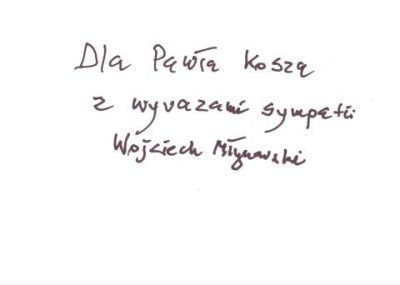 Dla Pawła Kosza
z wyrazami sympatii
Wojciech Młynarski